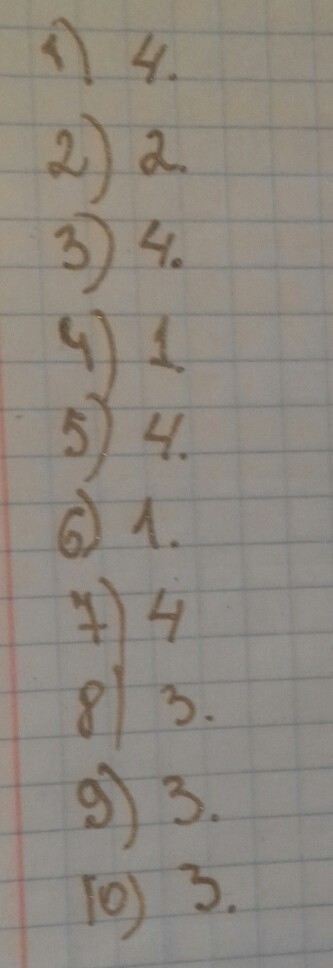 1) 4.
2) 2.
3) 4.
4) 1.
5) 4.
6) 1.
7) 4
8) 3.
9) 3.
10) 3.